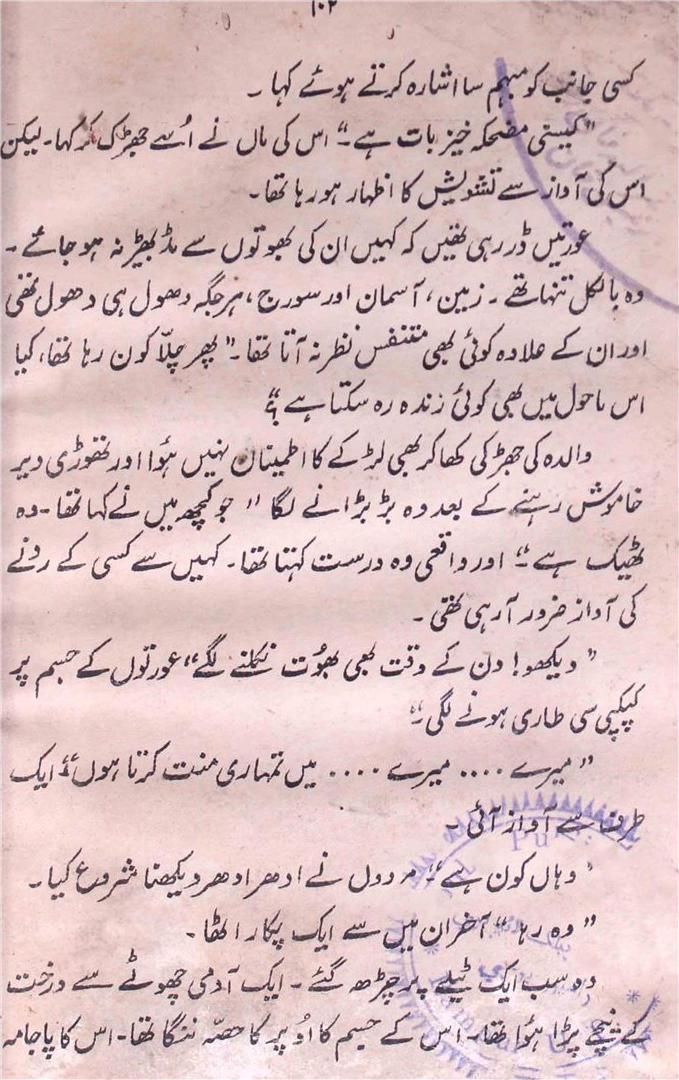 ۱۰۲
کسی جانب کو مبہم سا اشارہ کرتے ہوئے کہا ۔
"کیسی مضحکہ خیز بات ہے۔" اس کی ماں نے اُسے جھڑک کر کہا۔ لیکن
اس کی آواز سے تشویش کا اظہار ہو رہا تھا۔
عورتیں ڈر رہی تھیں کہ کہیں ان کی بھوتوں سے مڈ بھیڑ نہ ہو جائے ۔
وہ بالکل تنہا تھے ۔ زمین، آسمان اور سورج، ہر جگہ دھول ہی دھول تھی
اور ان کے علاوہ کوئی بھی متنفس نظر نہ آتا تھا ۔ "پھر چلّا کون رہا تھا، کیا
اس ماحول میں بھی کوئی زندہ رہ سکتا ہے ؟"
والدہ کی جھڑکی کھا کر بھی لڑکے کا اطمینان نہیں ہؤا اور تھوڑی دیر
خاموش رہنے کے بعد وہ بڑ بڑانے لگا " جو کچھ میں نے کہا تھا ۔ وہ
ٹھیک ہے ۔" اور واقعی وہ درست کہتا تھا ۔ کہیں سے کسی کے رونے
کی آواز ضرور آ رہی تھی ۔
" دیکھو! دن کے وقت بھی بھُوت نکلنے لگے" عورتوں کے جسم پر
کپکپی سی طاری ہونے لگی ۔"
" میرے .... میرے .... میں تمہاری منت کرتا ہوں" ایک
طرف سے آواز آئی ۔
" وہاں کون ہے ۔" مردوں نے ادھر ادھر دیکھنا شروع کیا ۔
" وہ رہا " آخر ان میں سے ایک پکار اٹھا ۔
وہ سب ایک ٹیلے پر چڑھ گئے ۔ ایک آدمی چھوٹے سے درخت
کے نیچے پڑا ہؤا تھا۔ اس کے جسم کا اُوپر کا حصّہ ننگا تھا ۔ اس کا پاجامہ